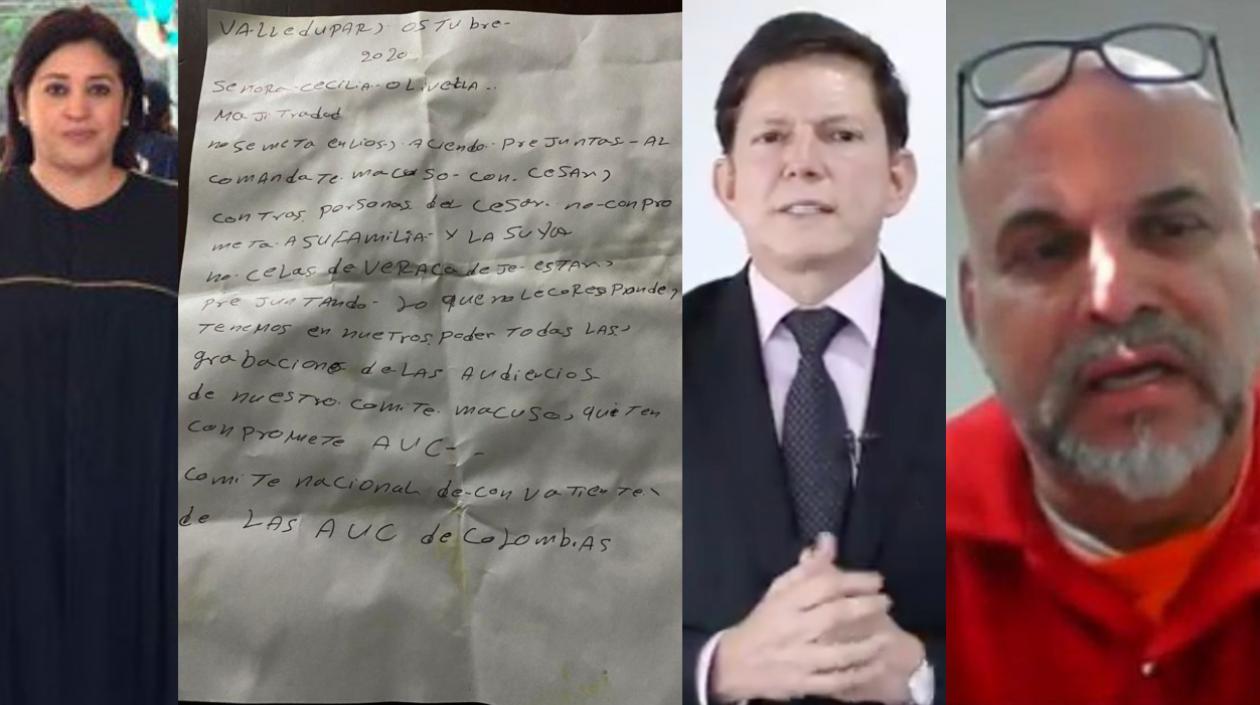 VALLEDUPAR, OSTUbre-
2020
Señora-CeCILIA-OLIVELLA..
MAJITRADAD
no Se META en LIOS, ACIENDO. PRE JUNTAS - AL
COMANDATE. MACUSO-CON. CESAR,
CONTRAS, PORSONAS del CeSar. no-CONPRO
META. A SU FAMILIA- Y LA SUYA
no-CELAS de VERACA de Je- ESTAR,
PRE JUNTANDO- LO que no Le COResPonde,
TENEMOS en NUETROS PODER TODAS LAS,
grabacione de LAS AUDIENCIOS
de nuestro. COMITE. MACUSO, que Ten
CONPROMETE AUC--
COMITE nacional de-CONVATIENTE,
de LAS AUC de COLOMBIAS